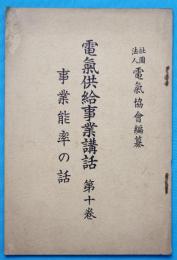 社團法人 電氣協會編纂
電氣供給事業講話 第十卷
事業能率の話